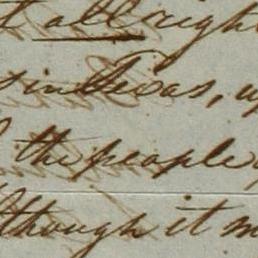 all right
in Texas, up
the people
though it m